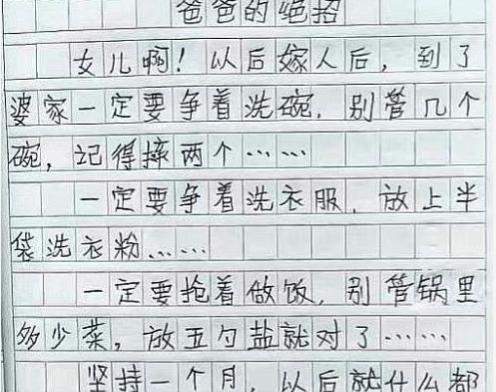 爸爸的绝招
女儿啊！以后嫁人后，到了
婆家一定要争着洗碗，别管几个
碗，记得摔两个……
一定要争着洗衣服，放上半
袋洗衣粉……
一定要抢着做饭，别管锅里
多少菜，放五勺盐就对了……
坚持一个月，以后就什么都